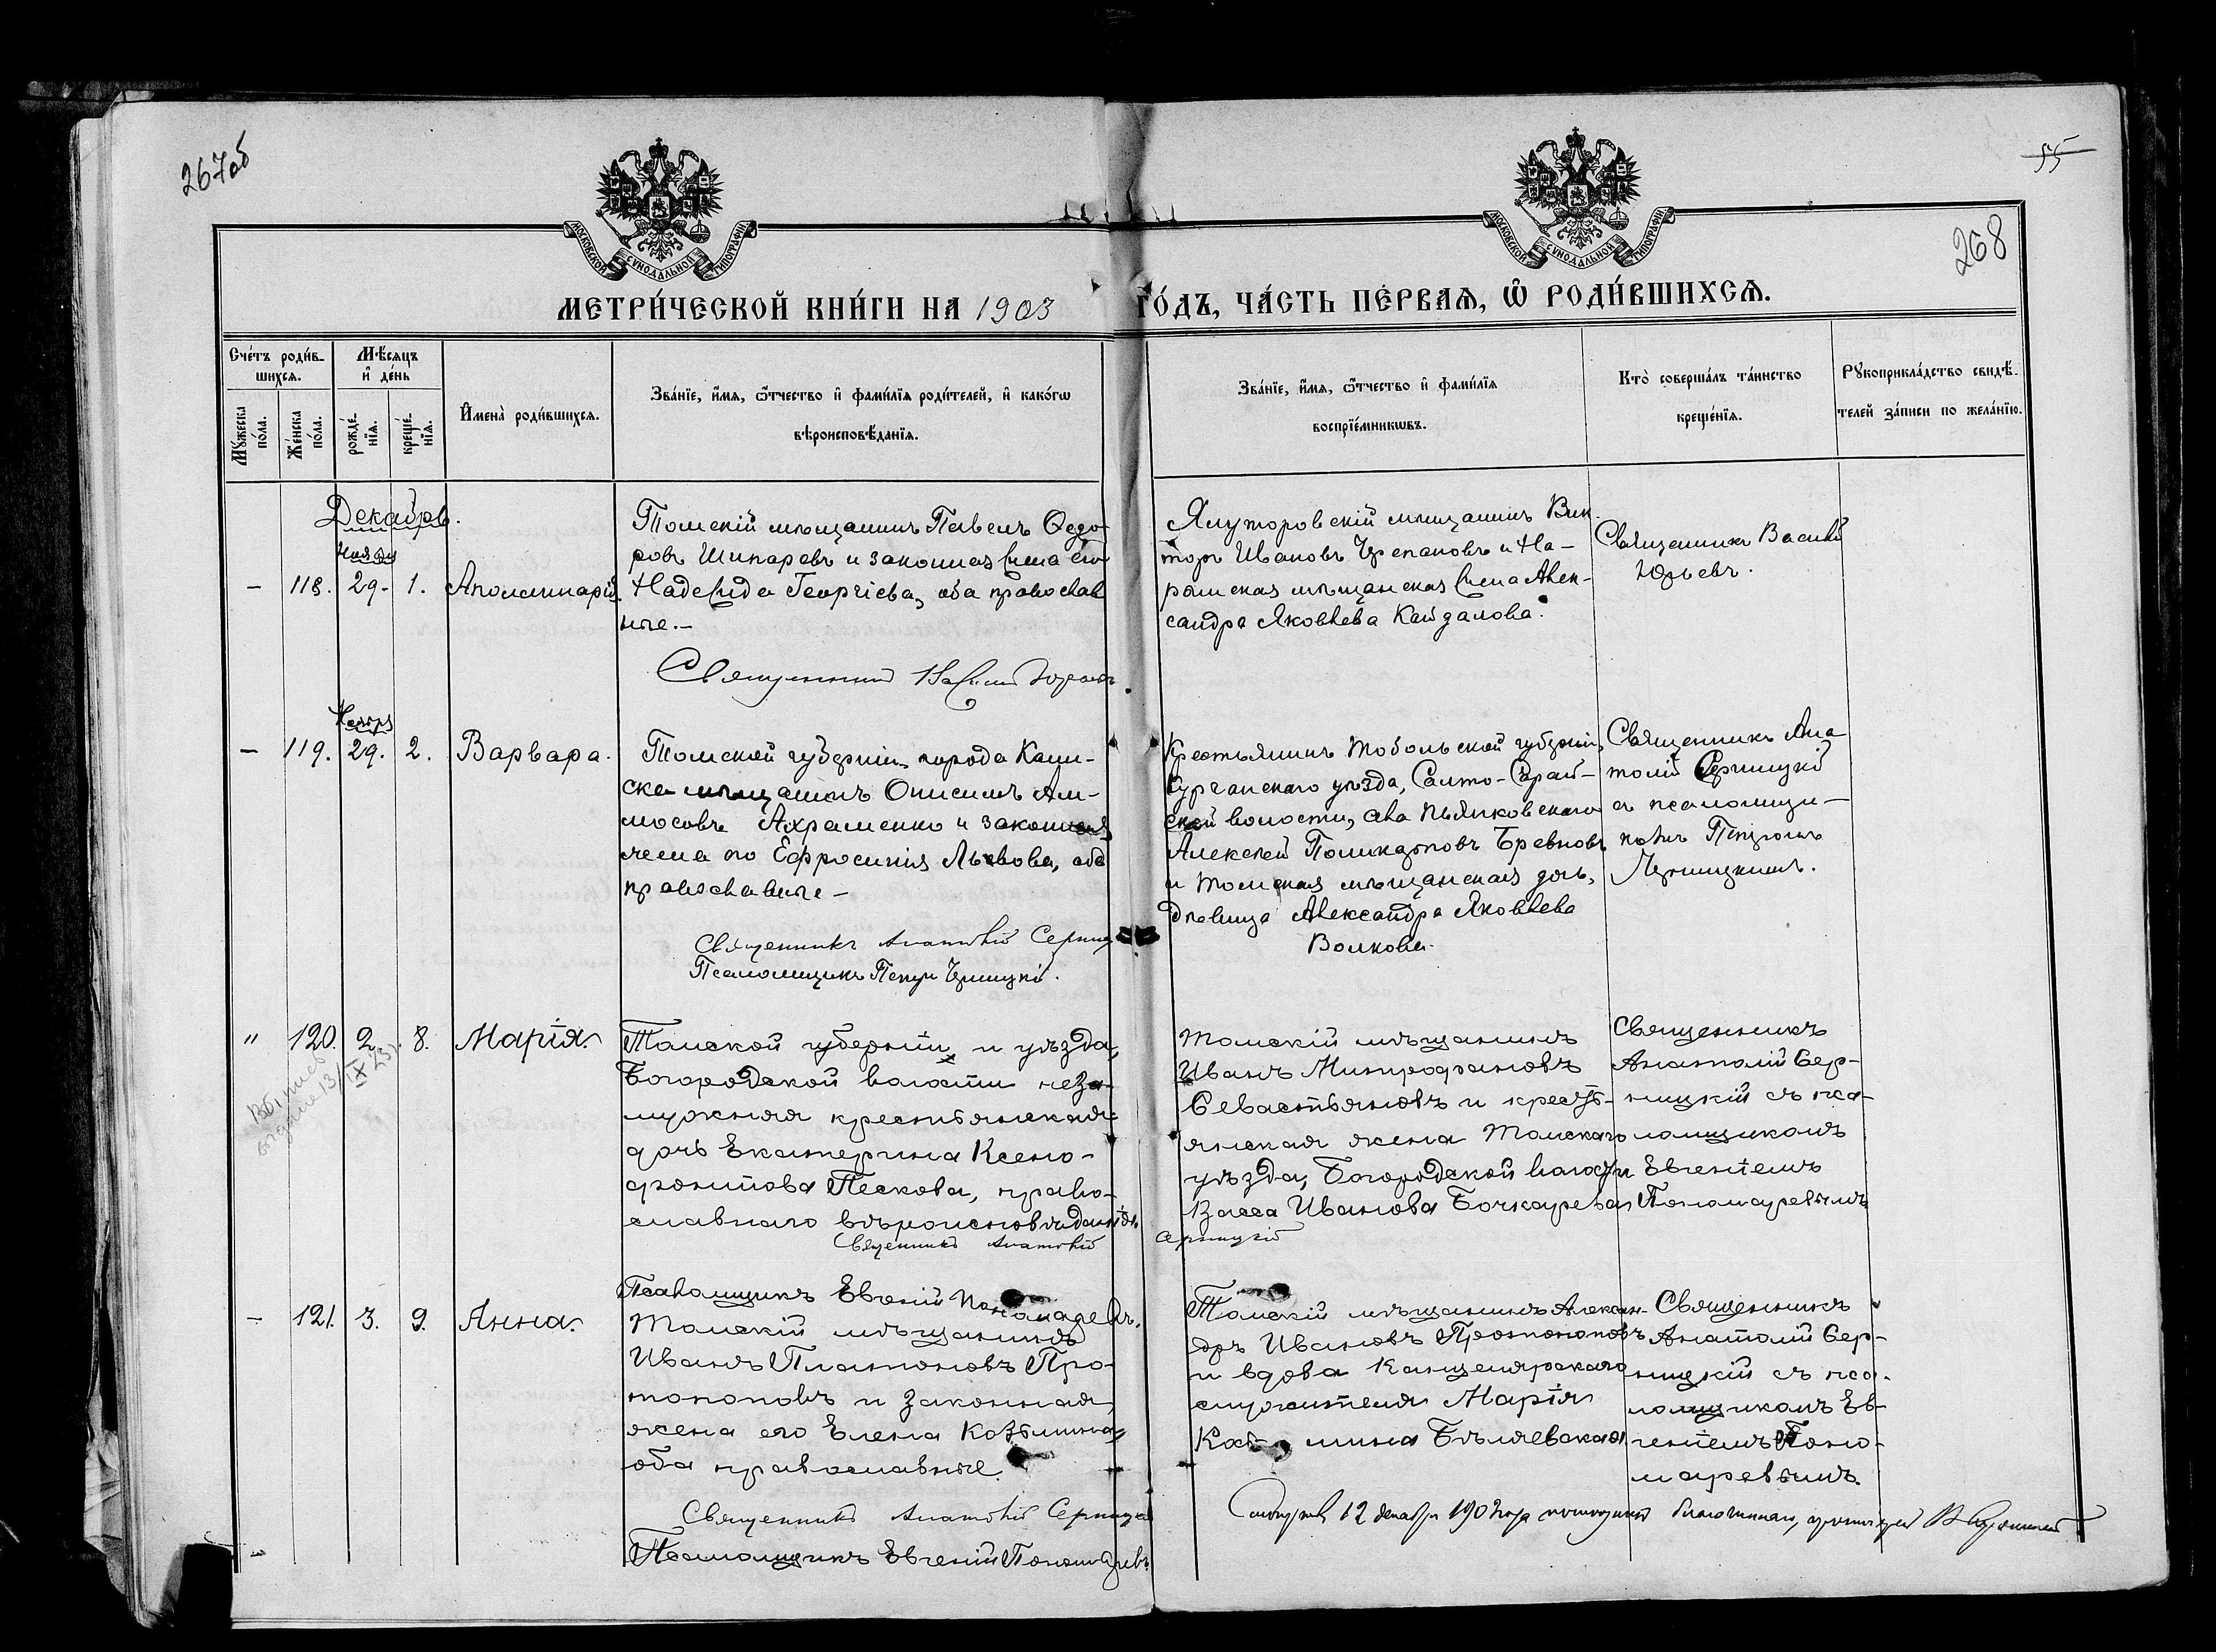 267об
55
268
МОСКОВСКОЙ СѴНОДАЛЬНОЙ ТИПОГРАФІИ
МОСКОВСКОЙ СѴНОДАЛЬНОЙ ТИПОГРАФІИ
МЕТРИ́ЧЕСКОЙ КНИ́ГИ НА 1903 ГО́ДЪ, ЧА́СТЬ ПЕ́РВАѦ, Ѽ РОДИ́ВШИХСѦ.
Сче́тъ роди́в-
шихсѧ.
Мѣ́сѧцъ
и҆ де́нь
Мꙋ́жеска
по́ла.
Же́нска
по́ла.
рожде́-
нїѧ.
креще́-
нїѧ.
И҆мена̀ роди́вшихсѧ.
Зва́нїе, и҆́мѧ, ѻ҆́тчество и҆ фами́лїѧ роди́телей, и҆ како́гѡ
вѣроисповѣ́данїѧ.
Зва́нїе, и҆́мѧ, ѻ҆́тчество и҆ фами́лїѧ
воспрїе́мникѡвъ.
Кто̀ соверша́лъ та́инство
креще́нїѧ.
Рꙋкоприкла́дство свидѣ́-
телей за́писи по жела́нїю.
Декабрь.
Ноября
— 118. 29. 1. Аполлинарія.
Томскій мѣщанинъ Павелъ Ѳедо-
ровъ Шипаревъ и законная жена его
Надежда Георгіева, оба православ
ные.—
Священникъ Василій Юрьевъ
Ялуторовскій мѣщанинъ Вик-
торъ Ивановъ Черепановъ и На-
рымская мѣщанская жена Алек-
сандра Яковлева Кайдалова.
Священникъ Василій
Юрьевъ.
Ноября
— 119. 29. 2. Варвара.
Томской губерніи, города Каин-
ска мѣщанинъ Онисимъ Ам-
мосовъ Ахраменко и законная
жена его Ефросинія Львова, оба
православные —
Священникъ Анатолій Серниц
Псаломщикъ Петръ
Крестьянинъ Тобольской губерніи,
Курганскаго уѣзда, Салто-Сарай-
ской волости, села Пьянковскаго
Алексѣй Поликарповъ Бревновъ
и Томская мѣщанская дочь,
дѣвица Александра Яковлева
Волкова.
Священникъ Ана-
толій Серницкій
съ псаломщи-
комъ Петромъ
" 120. 2. 8. Марія.
Томской губерніи и уѣзда,
Богородской волости неза-
мужняя крестьянская
дочь Екатерина Ксено-
фонтова Пескова, право-
славнаго вѣроисповѣданія.
Священникъ Анатолій Серницкій
Псаломщикъ Евгеній Пономаревъ.
Томскій мѣщанинъ
Иванъ Митрофановъ
Севастьяновъ и кресть-
янская жена Томскаго
уѣзда, Богородской волости
Васса Иванова Бочкарева
Священникъ
Анатолій Сер-
ницкій съ пса-
ломщикомъ
Евгеніемъ
Пономаревымъ
— 121. 3. 9. Анна.
Томскій мѣщанинъ
Иванъ Платоновъ Про-
топоповъ и законная
жена его Елена Козьмина,
оба православные.
Священникъ Анатолій Серницкій
Псаломщикъ Евгеній Пономаревъ.
Томскій мѣщанинъ Алексан-
дръ Ивановъ Протопоповъ
и вдова канцелярскаго
служителя Марія
Козьмина Бѣляевская
Священникъ
Анатолій Сер-
ницкій съ пса-
ломщикомъ Ев-
геніемъ Поно-
маревымъ.
12 декабря 1903 года